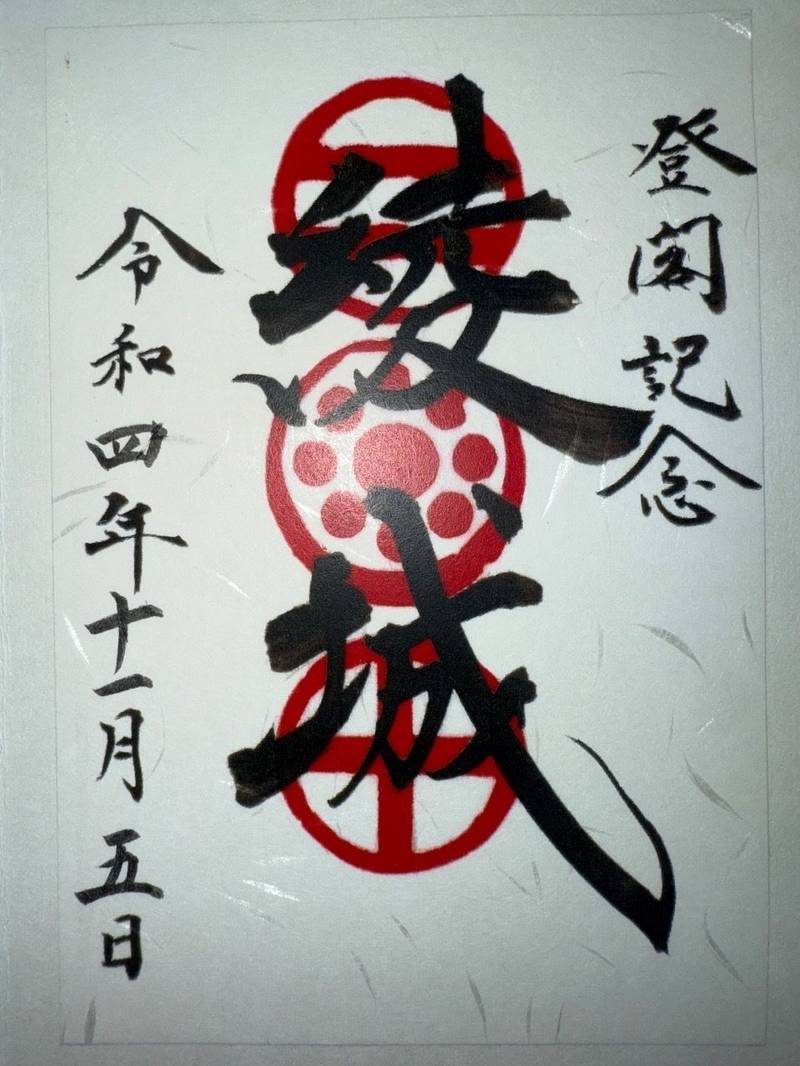 登閣記念
綾城
令和四年十一月五日